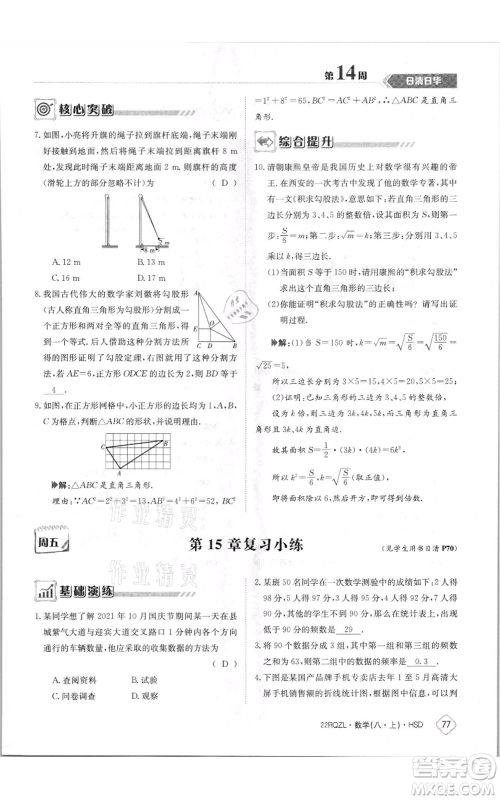 第14周
日清日毕
核心突破
7. 如图,小亮将升旗的绳子拉到旗杆底端,绳子末端刚
好接触到地面,然后将绳子末端拉到距离旗杆 8 m
处,发现此时绳子末端距离地面 2 m,则旗杆的高度
(滑轮上方的部分忽略不计)为 ( D )
A. 12 m B. 13 m
C. 16 m D. 17 m
8. 我国古代伟大的数学家刘徽将勾股形
(古人称直角三角形为勾股形)分割成
一个正方形和两对全等的直角三角形,
得到一个等式,后人借助于这种分割方
法证明了勾股定理,如图所示的三角形采用了这种分割方
法,若 AE=6,正方形 ODCE 的边长为 2,则 BD 等于
4 .
9. 如图,在正方形网格中,小正方形的边长为 1,点 A,
B,C 为网格的交点.判断△ABC 的形状,并说明理由.
解:△ABC 是直角三角形.
理由:∵AC²=2²+3²=13,AB²=6²+4²=52,BC²
=1²+8²=65,BC²=AC²+AB²,∴△ABC 是直角三角
形.
综合提升
10. 清朝康熙皇帝是我国历史上对数学很有兴趣的帝王.
在西安的一次考古中发现了他的数学专著,其中有一
文《积求勾股法》,它对“三边长为3、4、5的整数倍的
直角三角形,已知面积求边长”这一问题提出了解法:
“若所设者为积数(面积),以积率六除之,平方开之得
数,再以勾股弦各率乘之,即得勾股弦之数”.用现在
的数学语言表述是:“若直角三角形的三边长分别为
3、4、5的整数倍,设其面积为S,则求其边长的方法为:第一步:
S/6=m;第二步:√m=k;第三步:分别用3、4、5乘以k,
得三边长”.
(1)当面积 S 等于 150 时,请用康熙的“积求勾股法”
求出这个直角三角形的三边长;
(2)你能证明“积求勾股法”的正确性吗?请写出证明
过程.
解:(1)当 S=150 时,k=√m=√(S/6)=√(150/6)=
√25=5,
所以三边长分别为 3×5=15,4×5=20,5×5=25;
(2)证明:三边为3、4、5的整数倍,
设为k倍,则三边为3k,4k,5k,而三角形为直角三角形且
3k、4k为直角边.
故其面积 S=1/2·(3k)·(4k)=6k²,
所以k²=S/6,k=√(S/6)(取正值),
即将面积除以6,然后开方,即可得到倍数.
周五
第15章复习小练
(见学生用书日清P70)
基础演练
1. 某同学想了解 2021 年 10 月国庆节期间某一天在县
城紫气大道与迎宾大道交叉路口 1 分钟内各个方向
通行的车辆数量,他应采取的收集数据方法为
( D )
A. 查阅资料 B. 实验
C. 问卷调查 D. 观察
2. 某班 50 名同学在数学测验中的成绩为:2 人得
98分,4人得90分,13人得82分,8人得80分,15人
得64分,4人得61分,4人得58分,则成绩在80分到
90分的频数为 29 .
3. 将 90 个数据分成 3 组,其中,第一组与第三组的频率
之和为0.7,则第二组的频率是 0.3 .
4. 下图是某国产品牌手机专卖店去年8至12月高清大
屏手机销售额的折线统计图.根据图中信息,可以判
22RQZL·数学(八·上)·HSD
77
作业精灵
作业精灵